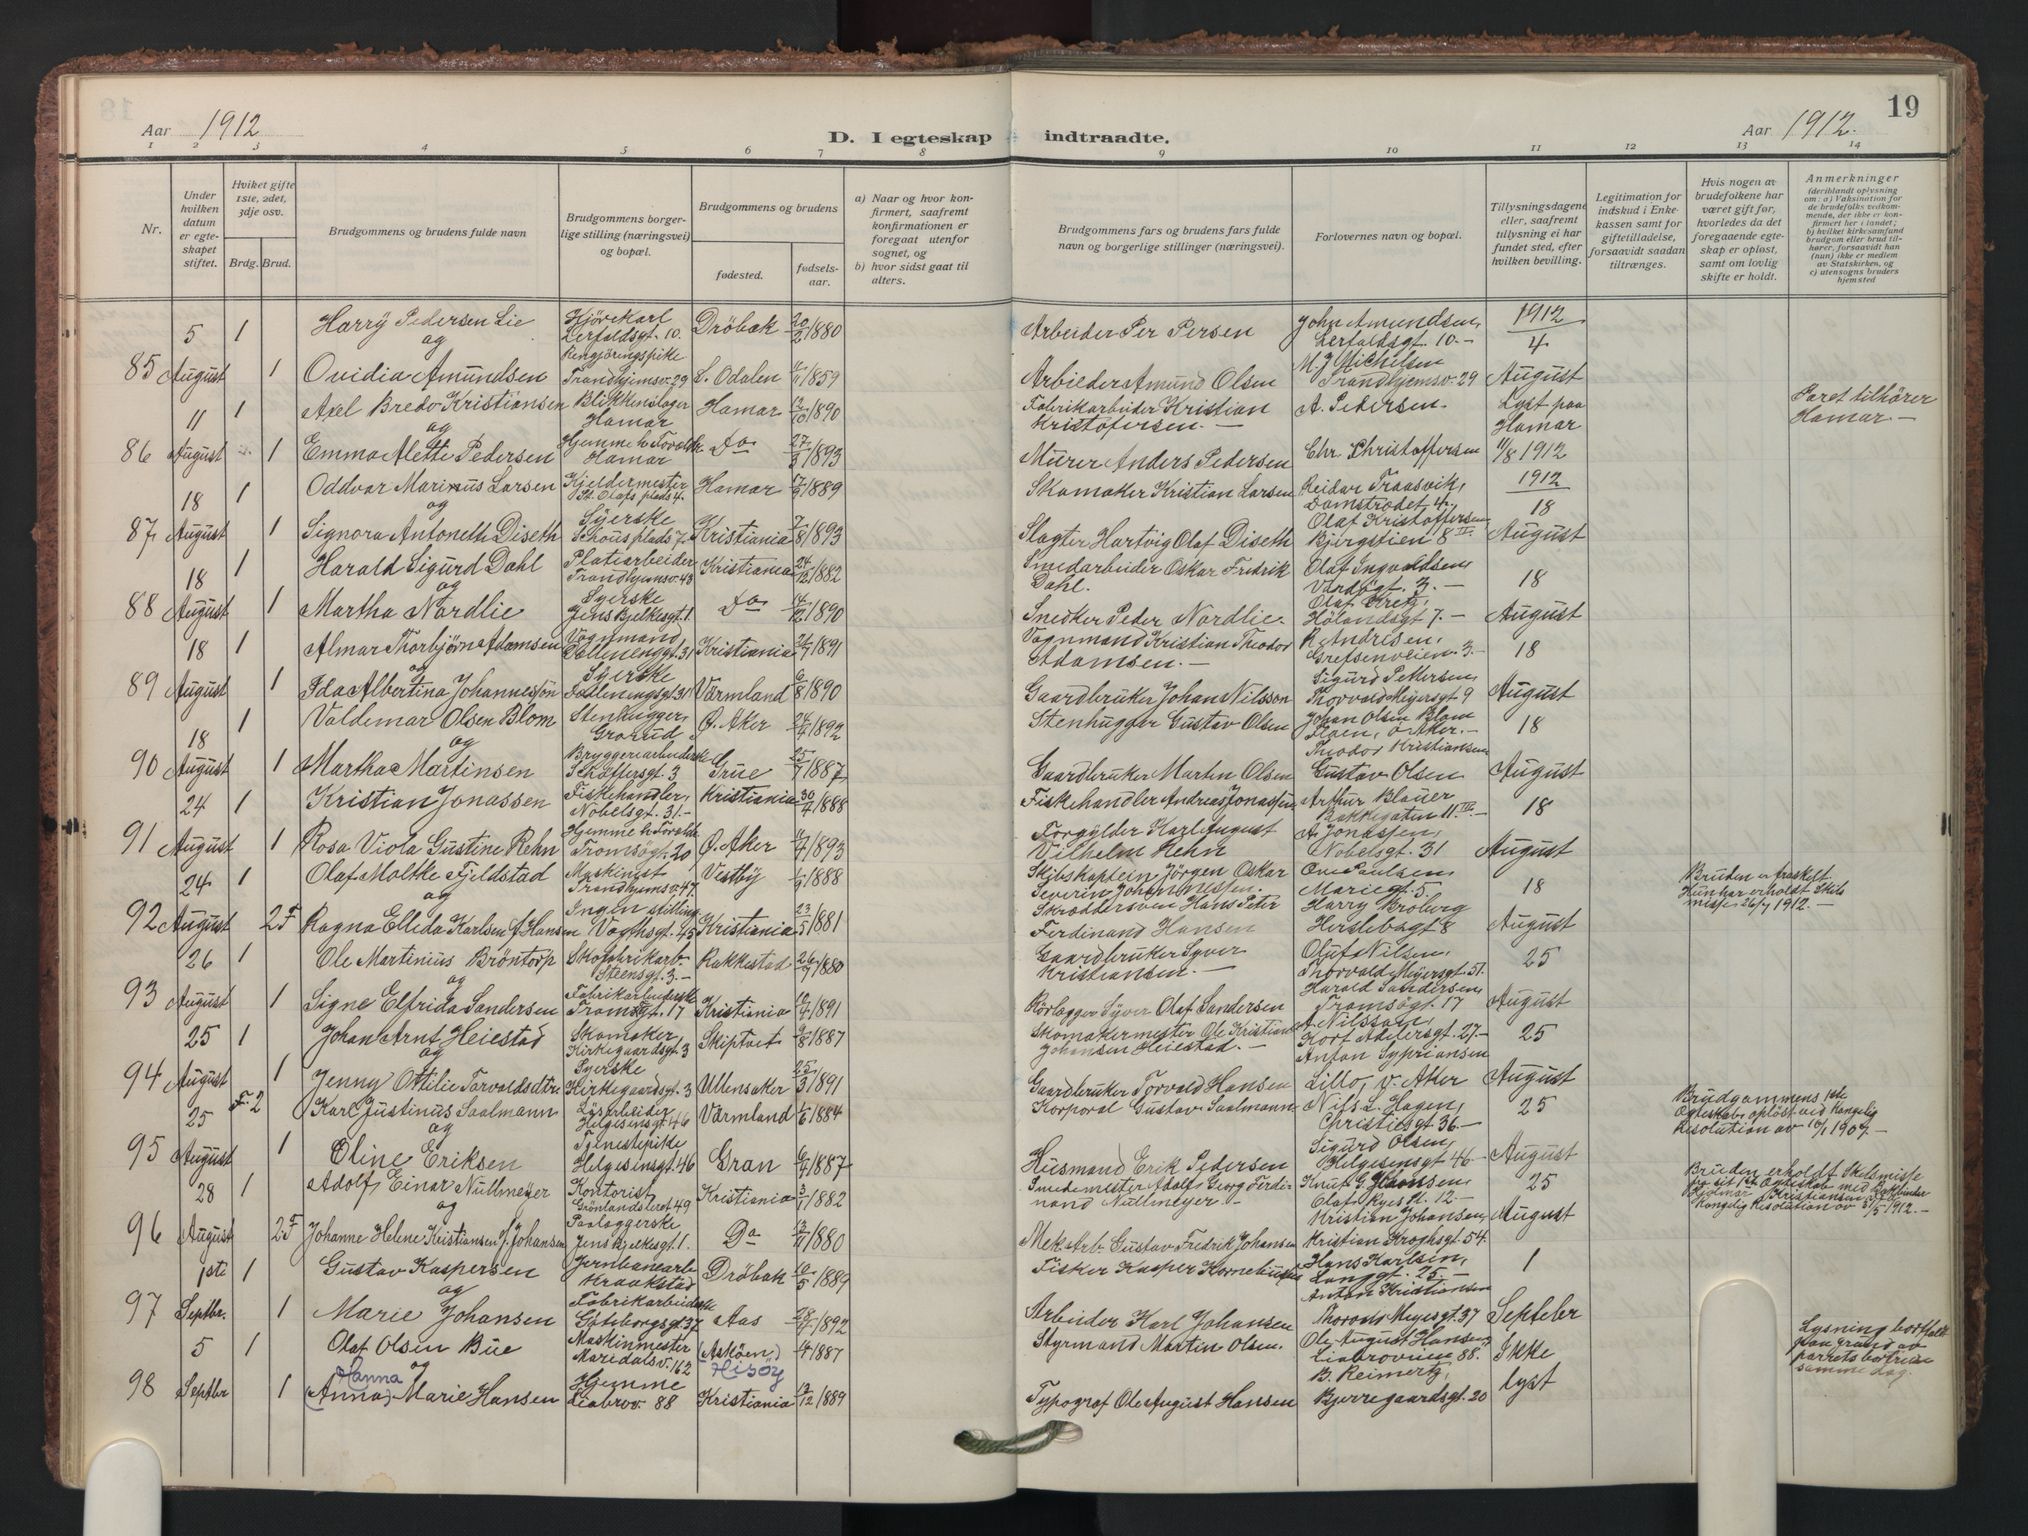 19
Aar 1912
D. I egteskap indtraadte.
Aar 1912.
1 2 3 4 5 6 7 8 9 10 11 12 13 14
Nr.
Under hvilken datum er egteskapet stiftet.
Hvilket gifte 1ste, 2det, 3dje osv.
Brdg. Brud.
Brudgommens og brudens fulde navn
Brudgommens borgerlige stilling (næringsvei) og bopæl.
Brudgommens og brudens
fødested.
fødselsaar.
a) Naar og hvor konfirmert, saafremt konfirmationen er foregaat utenfor sognet, og
b) hvor sidst gaat til alters.
Brudgommens fars og brudens fars fulde navn og borgerlige stillinger (næringsvei).
Forlovernes navn og bopæl.
Tillysningsdagene eller, saafremt tillysning ei har fundet sted, efter hvilken bevilling.
Legitimation for indskud i Enkekassen samt for giftetilladelse, forsaavidt saadan tiltrænges.
Hvis nogen av brudefolkene har været gift før, hvorledes da det foregaaende egteskap er opløst, samt om lovlig skifte er holdt.
Anmerkninger
(deriblandt oplysning om: a) Vaksination for de brudefolks vedkommende, der ikke er konfirmert her i landet; b) hvilket kirkesamfund brudgom eller brud tilhører, forsaavidt han (hun) ikke er medlem av Statskirken, og c) utensogns bruders hjemsted
5 1 Harry Pedersen Lie Lerfaldsgt. 10. Dröbak 20/2 1880 Arbeider Per Persen John Amundsen, Lerfaldsgt. 10.- 1912 4
og
85 August 1 Ovidia Amundsen Rengjöringspike Trondhjemsv. 29 S. Odalen 1859 Arbieder Amund Olsen M. J. Michelsen Trondhjemsv. 29 August
11 1 Axel Bredo Kristiansen Blikkenslager Hamar Hamar 12/10 1890 Fabrikarbeider Kristian Kristofersen.- A. Pedersen. Lyst paa Hamar Paret tilhörer Hamar.-
og
86 August 1 Emma Alette Pedersen Hjemme h. Hamar Do 27/3 1893 Mürer Anders Pedersen Chr. Christoffersen 11/8 1912
18 1 Oddvar Marinus Larsen Kjeldermester St. Olafs plads 4. Hamar 17/9 1889 Skomaker Kristian Larsen Reidar Traasvik, Damstrædet 4. 1912 18
og
87 August 1 Signora Antonette Diseth Syerske Schous plads 7 Kristiania 7/8 1893 Slagter Hartvig Olaf Diseth Olaf Kristoffersen, Bjergstien 8 II. August
18 1 Harald Sigurd Dahl Platiarbeider Trondhjemsv. 43 Kristiania 24/12 1882 Smedarbeider Oskar Fredrik Dahl. Olaf Ingvaldsen Vardögt. 3.- 18
og
88 August 1 Martha Nordlie Syerske Jens Bjelkesgt. 1 Do 14/12 1890 Snedker Peder Nordlie. Olaf Kretz, Hölandsgt 7.- August
18 1 Almar Thorbjörn Adamsen Vognmand, 31 Kristiania 1891 Vognmand Kristian Theodor Adamsen.- R. Andresen, Grefsenveien 3.- 18
og
89 August 1 Ida Albertina Johannesson Syerske 31 Värmland 6/8 1890 Gaardbruker Johan Nilsson Sigurd Pettersen, Thorvald Meyersgt. 9 August
18 1 Valdemar Olsen Blom Stenhugger, Grorud. Ö. Aker 24/4 1892 Stenhugger Gustav Olsen Johan Olsen Blom Ö. Aker.- 18
og
90 August 1 Martha Martinsen Bryggeriarbeiderske Schæffersgt. 3 Grue 25/7 1887 Gaardbruker Martin Olsen Theodor Kristiansen Gustav Olsen August
24 1 Kristian Jonassen Fiskehandler, Nobelsgt. 31.- Kristiania 30/4 1888 Fiskehandler Andreas Jonassen Arthur Blauer Bakkegaten 11 III. 18
91 August 1 Rosa Viola Gustine Rehn Hjemme h. Foreldre Tromsögt. 20 Ö. Aker 1893 Forgylder Karl August Vilhelm Rehn A. Jonassen, Nobelsgt. 31 August
24 1 Olaf Moltke Fjeldstad Maskinist Trondhjemsv. 47 Vestby 1/9 1888 Skibskaptein Jörgen Oskar Severin Johannessen. Ove Paulsen Mariegt. 5. 18 Bruden er fraskilt Hun har erholdt Skilsmisse 26/7 1912.-
og
92 August 2 F Ragna Ellida Karlsen f. Hansen Ingen stilling Vogtsgt. 45 Kristiania 23/5 1881 Skræddersven Hans Peter Ferdinand Hansen Harry Broberg Herslebsgt 8 August
26 1 Ole Martinius Bröntorp Skofabrikarb. Steensgt. 3.- Rakkestad 26/9 1880 Gaardbruker Syver Kristiansen.- Oluf Nilsen, Thorvald Meyersgt. 51. 25
og
93 August 1 Signe Elfrida Sandersen Fabrikarbeiderske Tromsögt. 17 Kristiania 10/7 1891 Rörlægger Syver Olaf Sandersen Harald Sandersen, Tromsögt. 17 August
25 1 Johan Arnt Heiestad Skomaker, Kirkegaardsgt. 3 Skiptvet 9/8 1887 Skomakermester Ole Kristian Johansen Heiestad.- A. Nilsson, Kort Adelersgt. 27.- 25
og
94 August 1 Jenny Ottilie Torvaldsdtr. Syerske Kirkegaardsgt. 3 Ullensaker 25/3 1891 Gaardbruker Torvald Hansen Anton Sypriansen Lillo, V. Aker August
25 F. 2 Karl Justinus Saalmann Lösarbeider Helgesensgt. 46 Värmland 1/6 1884 Korporal Gustav Saalmann Nils L. Hagen, Christiesgt 36.- 25 Brudgommens 1ste Egteskab oplöst ved Kongelig Resolution av 10/1 1907.-
og
95 August 1 Oline Eriksen Tjenestepike Helgesensgt. 46 Gran 1887 Husmand Erik Pedersen Sigurd Olsen, Helgesensgt 46.- August
28 1 Adolf Einar Nullmeyer Kontorist Grönlandsleret 49 Kristiania 3/1 1882 Smedemester Adolf Georg Ferdinand Nullmeyer- Knut G. Olaf Ryes Pl. 12.- 25 Bruden erholdt Skilsmisse fra sit 1st. Egteskab med Hjalmar Kristiansen Kongelig Resolution av 31/5 1912.-
og
96 August 2 F Johanne Helene Kristiansen f. Johansen Jens Bjelkesgt. 1. Do 1880 Mek. Arb. Gustav Fredrik Johansen Kristian Johansen, Kristian Kroghsgt. 54. August
1ste 1 Gustav Kaspersen Jernbanearb. Kraakstad Dröbak 10/5 1889 Fisker Kasper Hans Karlsen, Langgt. 25.- 1
og
97 Septbr. 1 Marie Johansen Fabrikarbeiderske Göteborgsgt. 37 Aas 1892 Arbeider Karl Johansen Anton Kristiansen Thorvald Meyersgt. 37 Septeber
5 1 Olaf Olsen Bue Maskinmester Maridalsv. 162 (Asköen,) Hisöy 1887 Styrmand Martin Olsen. Ole August Hansen, Liabroveien 88. Ikke Lysning bortfaldt paa grund av parrets bortreise samme dag.
og
98 Septbr 1 Hanna (Anna) Marie Hansen Hjemme Liabrov. 88 Kristiania 12/12 1889 Typograf Ole August Hansen B. Reimertz, Bjerregaardsgt. 20 lyst